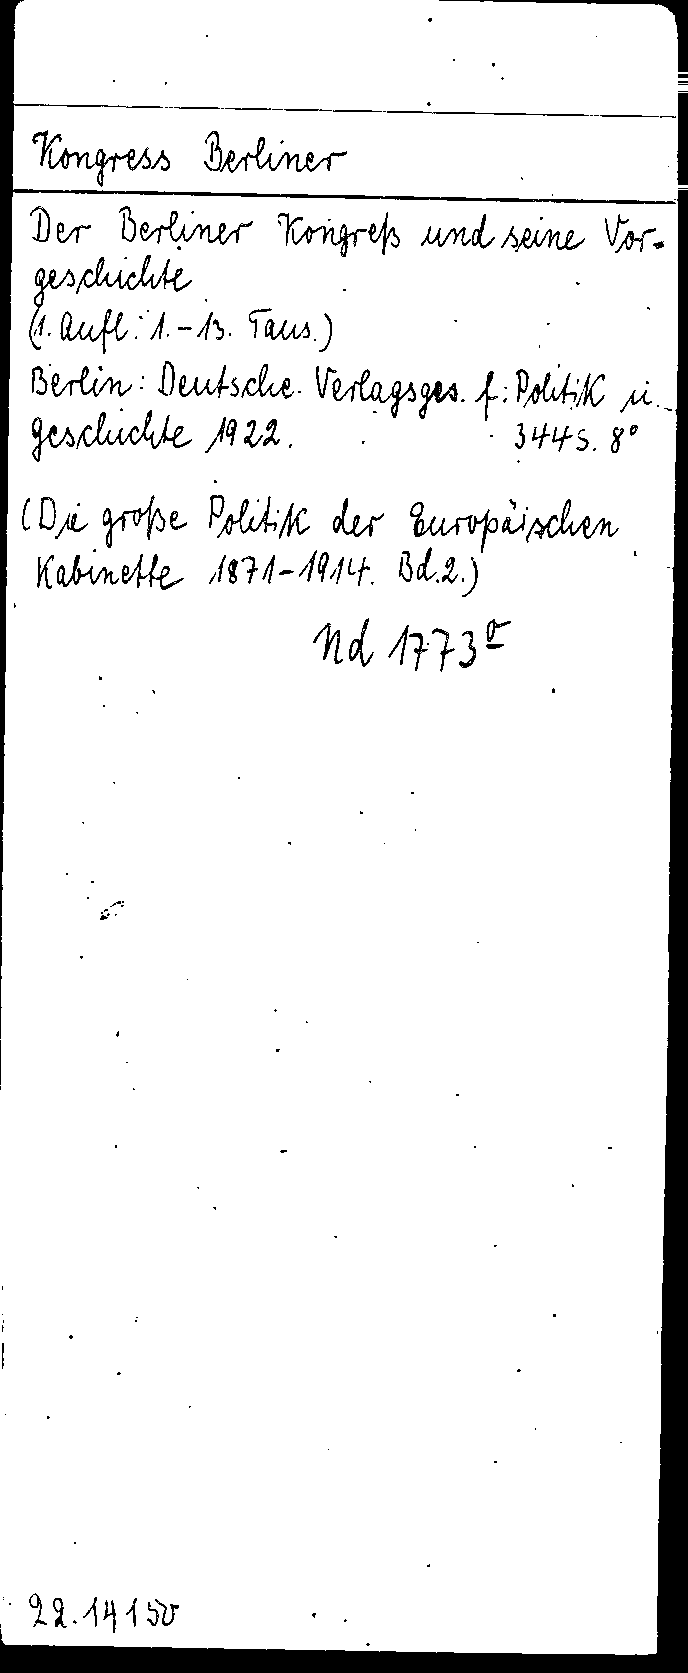 Kongress Berliner
Der Berliner Kongreß und seine Vor-
geschichte
(1. Aufl. 1.-13. Taus.)
Berlin: Deutsche Verlagsges. f. Politik u.
Geschichte 1922. 344 S. 8°
(Die große Politik der Europäischen
Kabinette 1871-1914. Bd. 2.)
Nd 1773
22.14150